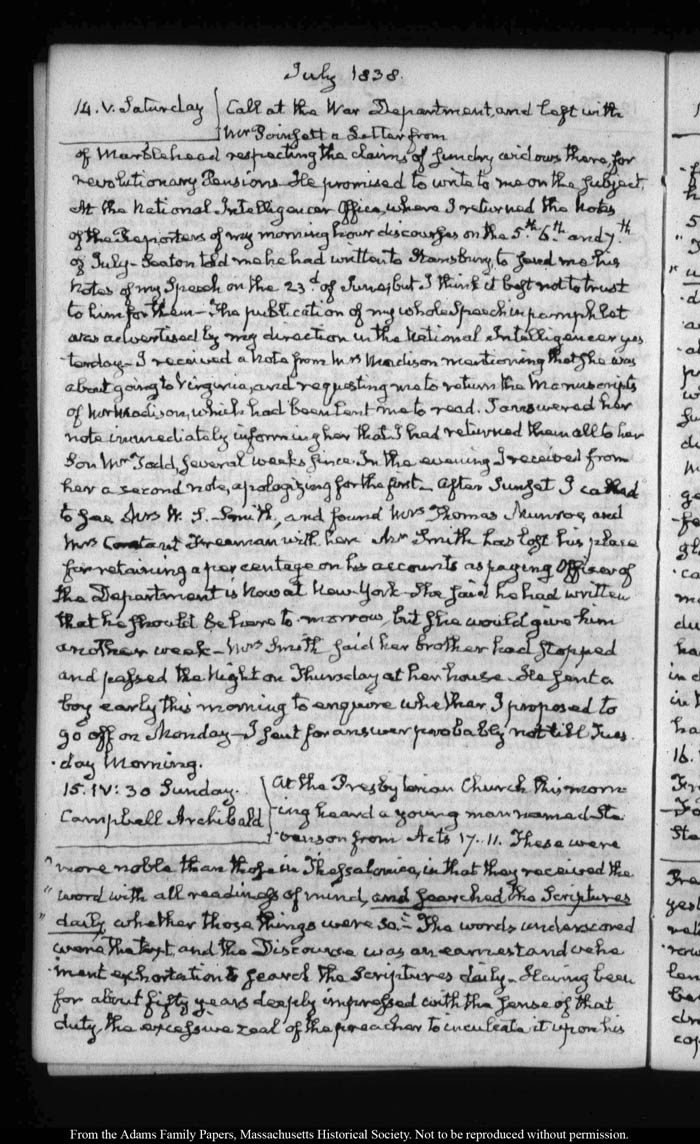 July 1838.
14. V. Saturday
Call at the War Department, and left with
Mr Poinsett a Letter from
of Marblehead respecting the claims of sundry widows there, for
revolutionary Pensions. He promised to write to me on the subject.
At the National Intelligencer Office, where I returned the notes
of the Reporters of my morning hour discourses on the 5.th 6.th and 7.th
of July — Seaton told me he had written to Stansbury, to send me his
notes of my Speech on the 23.d of June, but I think it best not to trust
to him for them — The publication of my whole Speech in pamphlet
was advertised by my direction in the National Intelligencer yes
-terday — I received a note from Mrs Madison mentioning that she was
about going to Virginia, and requesting me to return the manuscripts
of Mr Madison, which had been lent me to read. I answered her
note immediately informing her that I had returned them all to her
Son Mr Todd, several weeks since. In the evening I received from
her a second note, apologizing for the first — After Sunset I called
to see Mrs W. S. Smith, and found Mrs Thomas Munroe, and
Mrs Constant Freeman with her. Mr Smith has lost his place
for retaining a per centage on his accounts as paying Officer of
the Department is now at New-York — She said he had written
that he should be here to-morrow, but she would give him
another week — Mrs Smith said her brother had stopped
and passed the night on Thursday at her house. He sent a
boy early this morning to enquire whether I proposed to
go off on Monday — I sent for answer probably not till Tues
-day Morning.
15. IV: 30 Sunday.
Campbell Archibald
At the Presbyterian Church this morn
-ing heard a young man named Ste
-venson from Acts 17. 11. These were
" more noble than those in Thessalonica, in that they received the
" word with all readiness of mind, and searched the Scriptures
" daily whether those things were so." The words underscored
were the text, and the Discourse was an earnest and vehe
-ment exhortation to search the Scriptures daily — Having been
for about fifty years deeply impressed with the sense of that
duty, the excessive zeal of the preacher to inculcate it upon his
16.
From the Adams Family Papers, Massachusetts Historical Society. Not to be reproduced without permission.